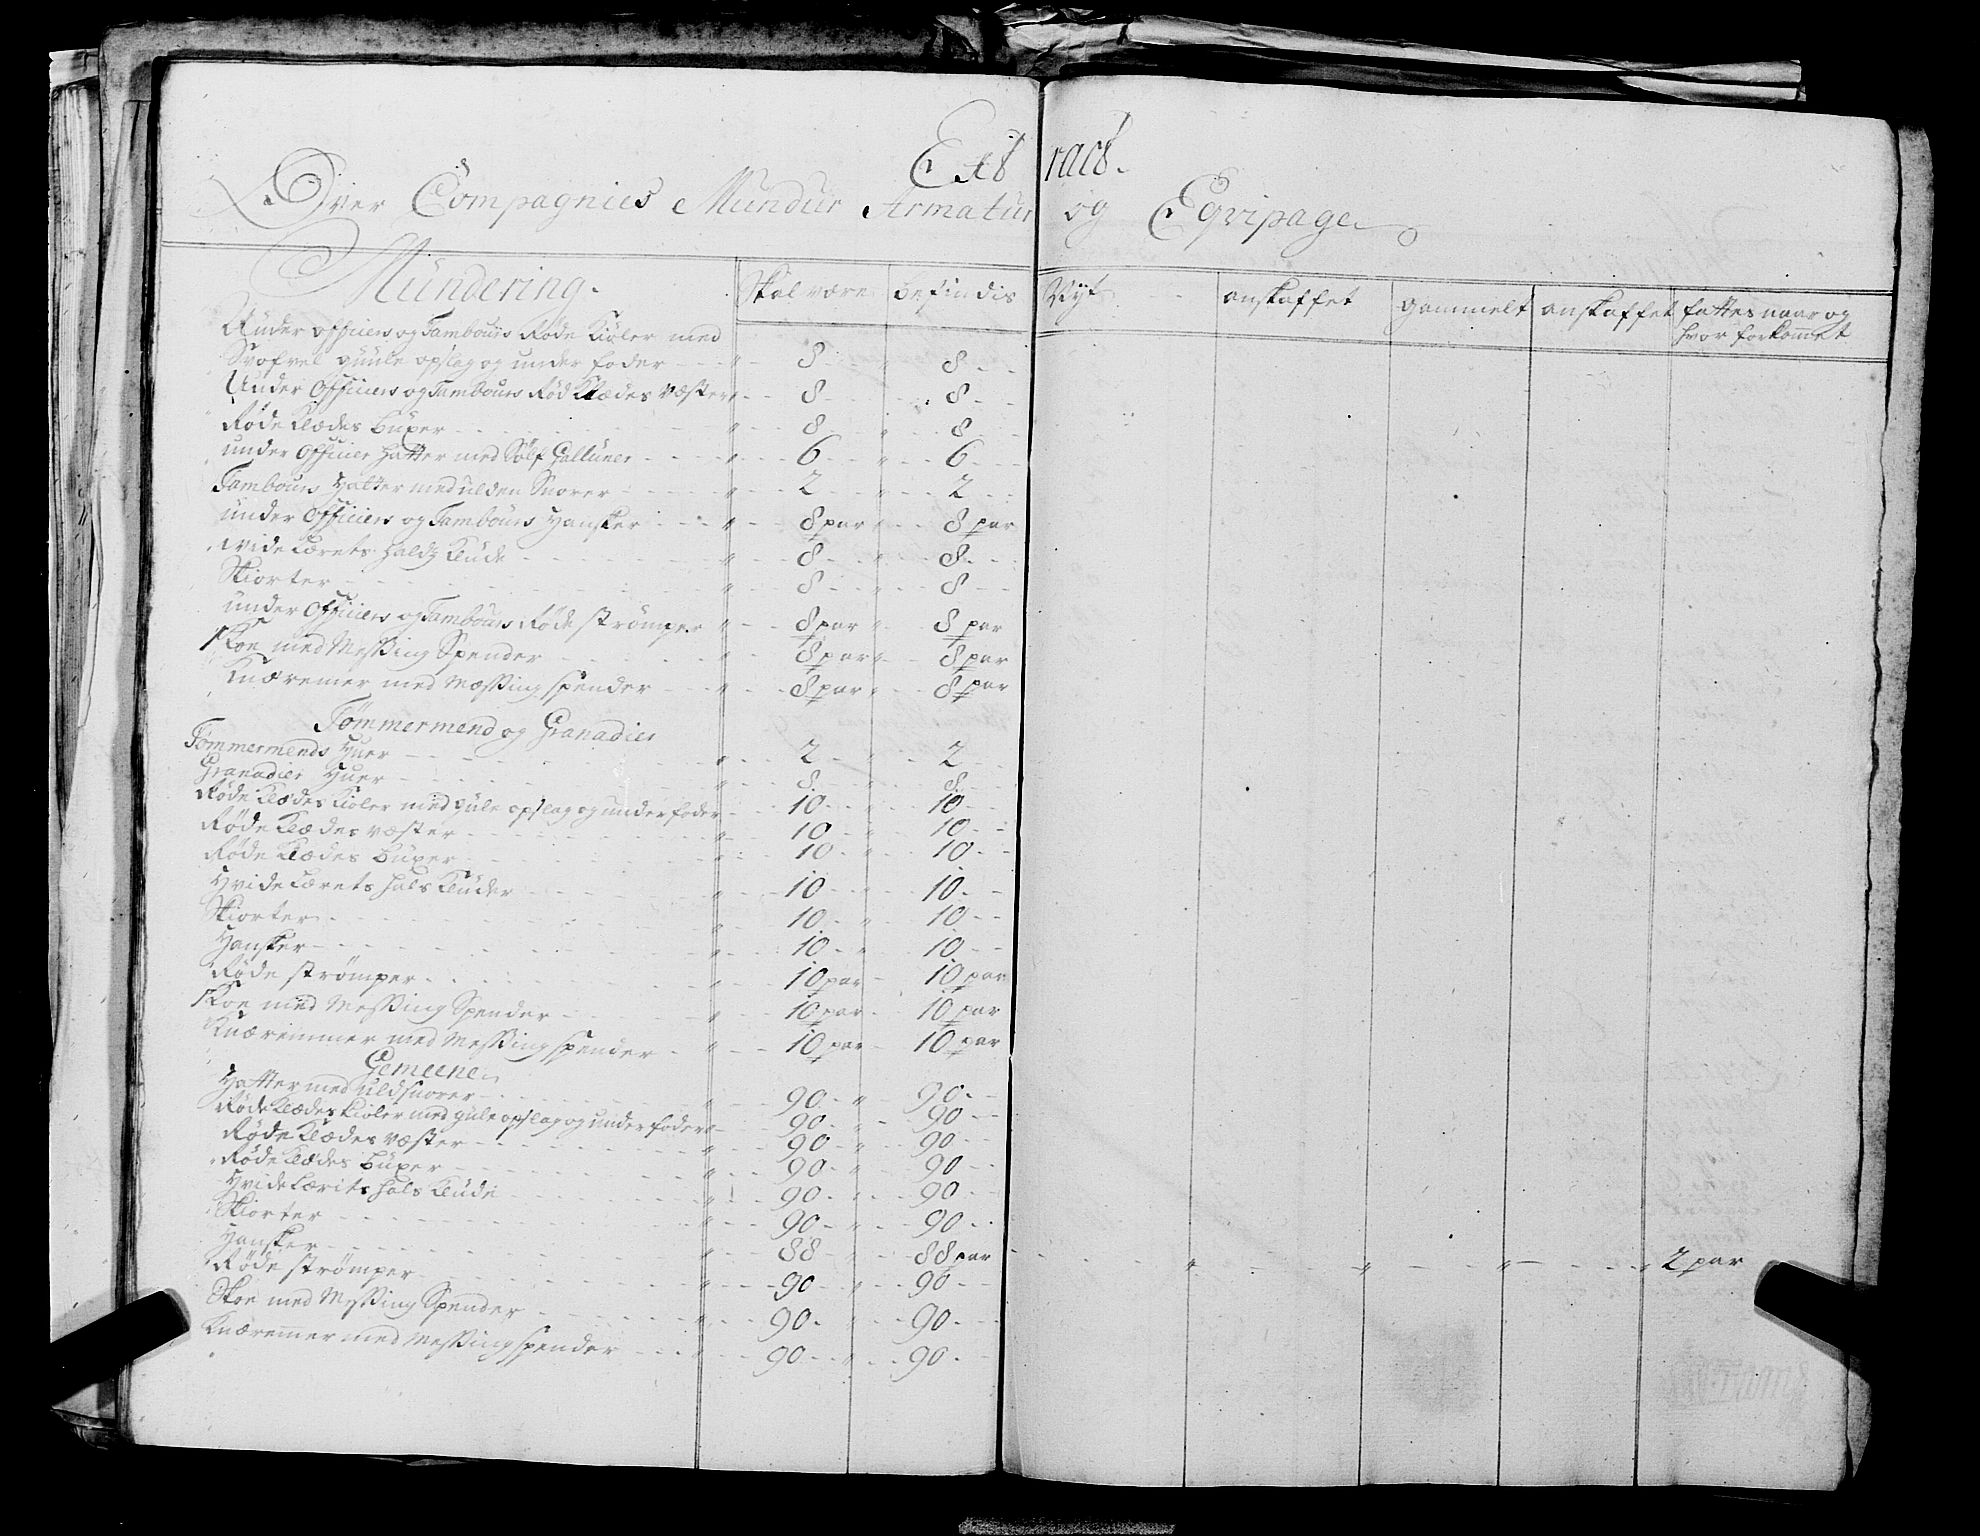 Extract.
Over Compagnies Mundur Armatur og Eqvipage
Mundering. Skal være befindis Nyt anskaffet gammelt anskaffet fattes naar og hvor forkommet
Under officiers og Tambours Røde Kioler med
Svofvel guule opslag og under foder 8 8
Under Officiers og Tambours Rød Klædes væster 8 8
Røde Klædes Buxer 8 8
under Officier Hatter med Sølf Galluner 6 6
Tambours Hatter med ulden Snorer 2 2
under Officiers og Tambours Hansker 8 par 8 par
vide Lærets Halds Klude 8 8
Skiorter 8 8
under Officiers og Tambours Røde strømper 8 par 8 par
skoe med Messing Spender 8 par 8 par
Knæremer med Mæssing spender 8 par 8 par
Tømmermend og Granadier
Tømmermends Huer 2 2
Granadier Huer 8 8
Røde Klædes Kioler med gule opslag og under foder 10 10
Røde Klædes væster 10 10
Røde Klædes Buxer 10 10
Hvide Lærets hals Klüder 10 10
Skiorter 10 10
Hansker 10 10
Røde strømper 10 par 10 par
skoe med Messing Spender 10 par 10 par
Knæremmer med Messing spender 10 par 10 par
Gemeene
Hatter med uldsnorer 90 90
Røde Klædes Kioler med gule opslag og under foder 90 90
Røde Klædes væster 90 90
Røde Klædes Buxer 90 90
Hvide Lærits hals Klüde 90 90
Skiorter 90 90
Hansker 88 88 par 2 par
Røde strømper 90 90
Skoe med Messing Spender 90 90
Knæremer med Messing spender 90 90